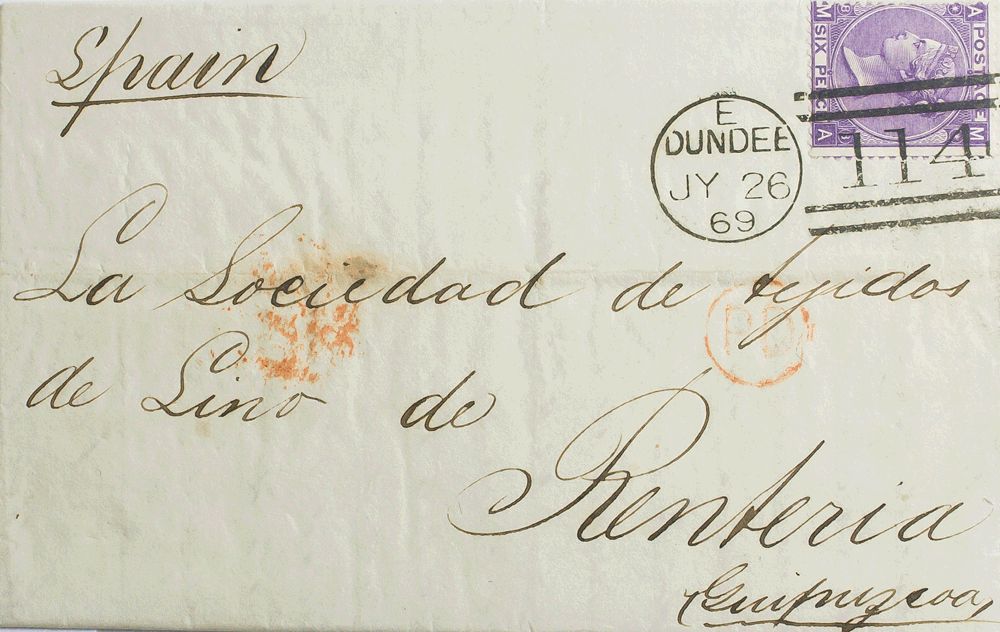 Spain
E
DUNDEE
JY 26
69
114
SIX PENCE
POSTAGE
M
A
A
M
8
La Sociedad de tejidos
de Lino de
PD
Renteria
(Guipuzcoa)